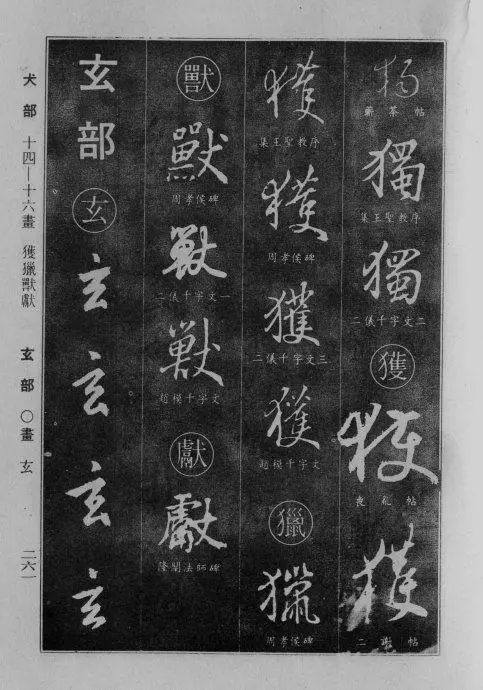 獨
蘄茶帖
獨
集王聖教序
獨
二儀千字文二
獲
獲
喪亂帖
獲
二謝帖
獲
集王聖教序
獲
周孝侯碑
獲
二儀千字文三
獲
趙模千字文
獵
獵
周孝侯碑
獸
獸
周孝侯碑
獸
二儀千字文一
獸
趙模千字文
獻
獻
隆闡法師碑
玄部
玄
玄
玄
玄
玄
犬部 十四—十六畫 獲獵獸獻 玄部 〇畫 玄 二六一